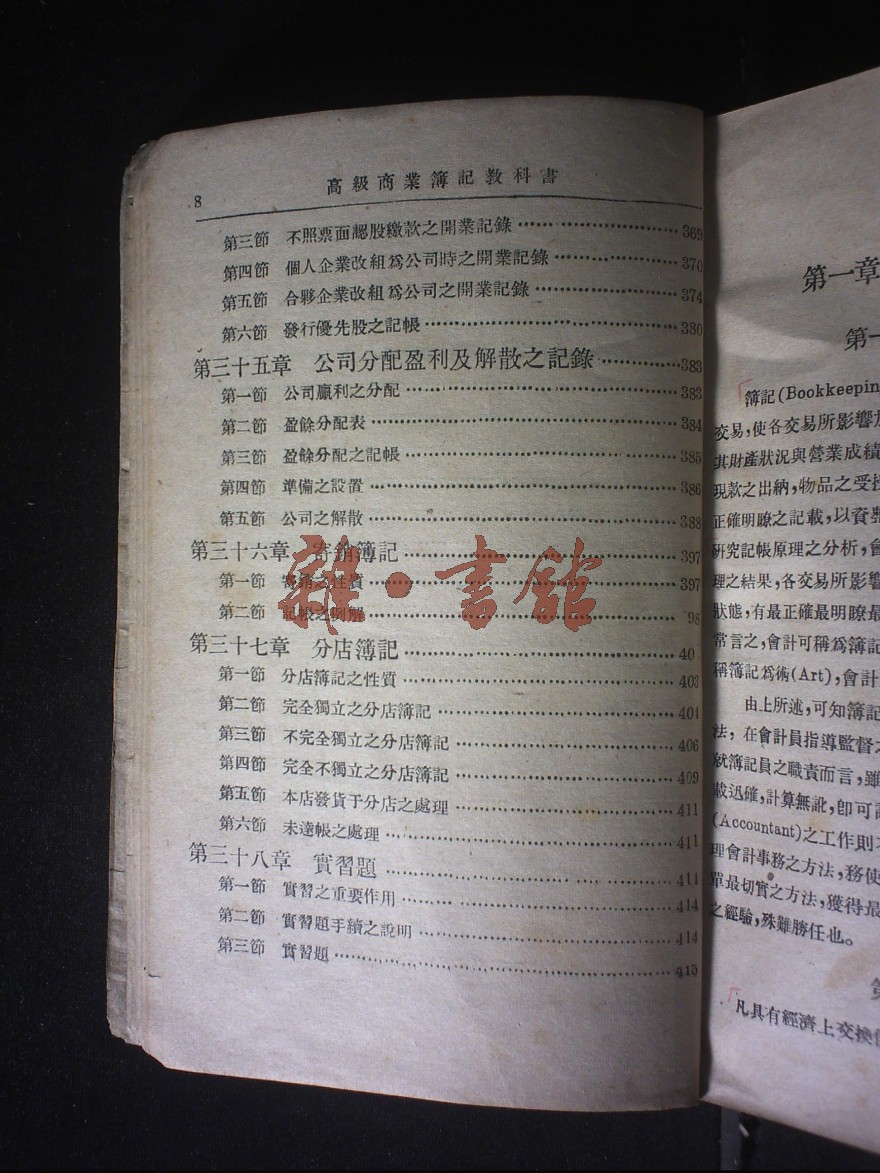 8 高級商業簿記教科書
第三節 不照票面認股繳款之開業記錄 369
第四節 個人企業改組爲公司時之開業記錄 370
第五節 合夥企業改組爲公司之開業記錄 374
第六節 發行優先股之記帳 380
第三十五章 公司分配盈利及解散之記錄 383
第一節 公司贏利之分配 383
第二節 盈餘分配表 384
第三節 盈餘分配之記帳 385
第四節 準備之設置 386
第五節 公司之解散 388
第三十六章 寄銷簿記 397
第一節 寄銷之性質 397
第二節 記帳之例解 98
第三十七章 分店簿記 40
第一節 分店簿記之性質 403
第二節 完全獨立之分店簿記 404
第三節 不完全獨立之分店簿記 406
第四節 完全不獨立之分店簿記 409
第五節 本店發貨于分店之處理 411
第六節 未達帳之處理 411
第三十八章 實習題 414
第一節 實習之重要作用 414
第二節 實習題手續之說明 414
第三節 實習題 415
雜·書館
第一章
第一
簿記(Bookkeepin
交易,使各交易所影響
其財產狀況與營業成績
現款之出納,物品之受授
正確明瞭之記載,以資
研究記帳原理之分析,會
理之結果,各交易所影響
狀態,有最正確最明瞭最
常言之,會計可稱爲簿記
稱簿記爲術(Art),會計
由上所述,可知簿記
法,在會計員指導監督之
就簿記員之職責而言,雖
載迅確,計算無訛,卽可
(Accountant)之工作則
理會計事務之方法,務使
單最切實之方法,獲得最
之經驗,殊難勝任也。
第
凡具有經濟上交換